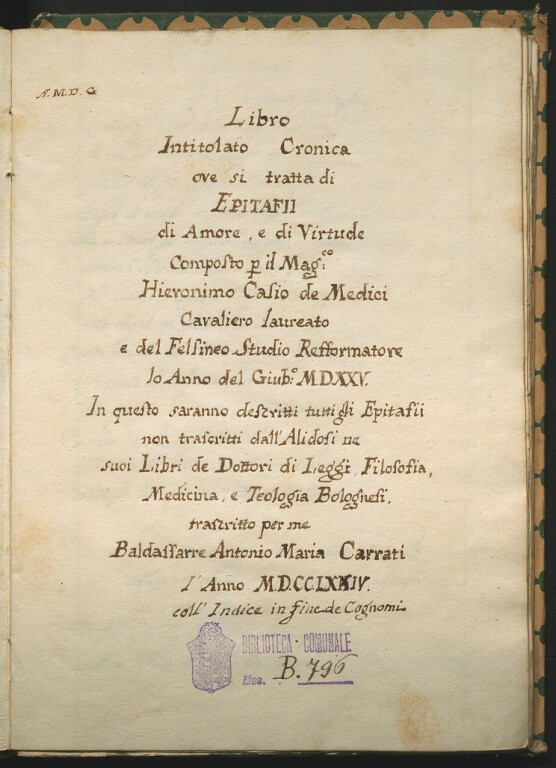 A. M. D. G
Libro
Intitolato Cronica
ove si tratta di
EPITAFII
di Amore, e di Virtude
Composto p il Mag:co
Hieronimo Casio de Medici
Cavaliero laureato
e del Felsineo Studio Refformatore
lo Anno del Giub:o MDXXV.
In questo saranno descritti tutti gli Epitafii
non trascritti dall'Alidosi ne
suoi Libri de Dottori di Leggi, Filosofia,
Medicina, e Teologia Bolognesi.
trascritto per me
Baldassarre Antonio Maria Carrati
l'Anno M.D.CCLXXIV.
coll' Indice in fine de Cognomi
BIBLIOTECA · COMUNALE
Mss. B. 796